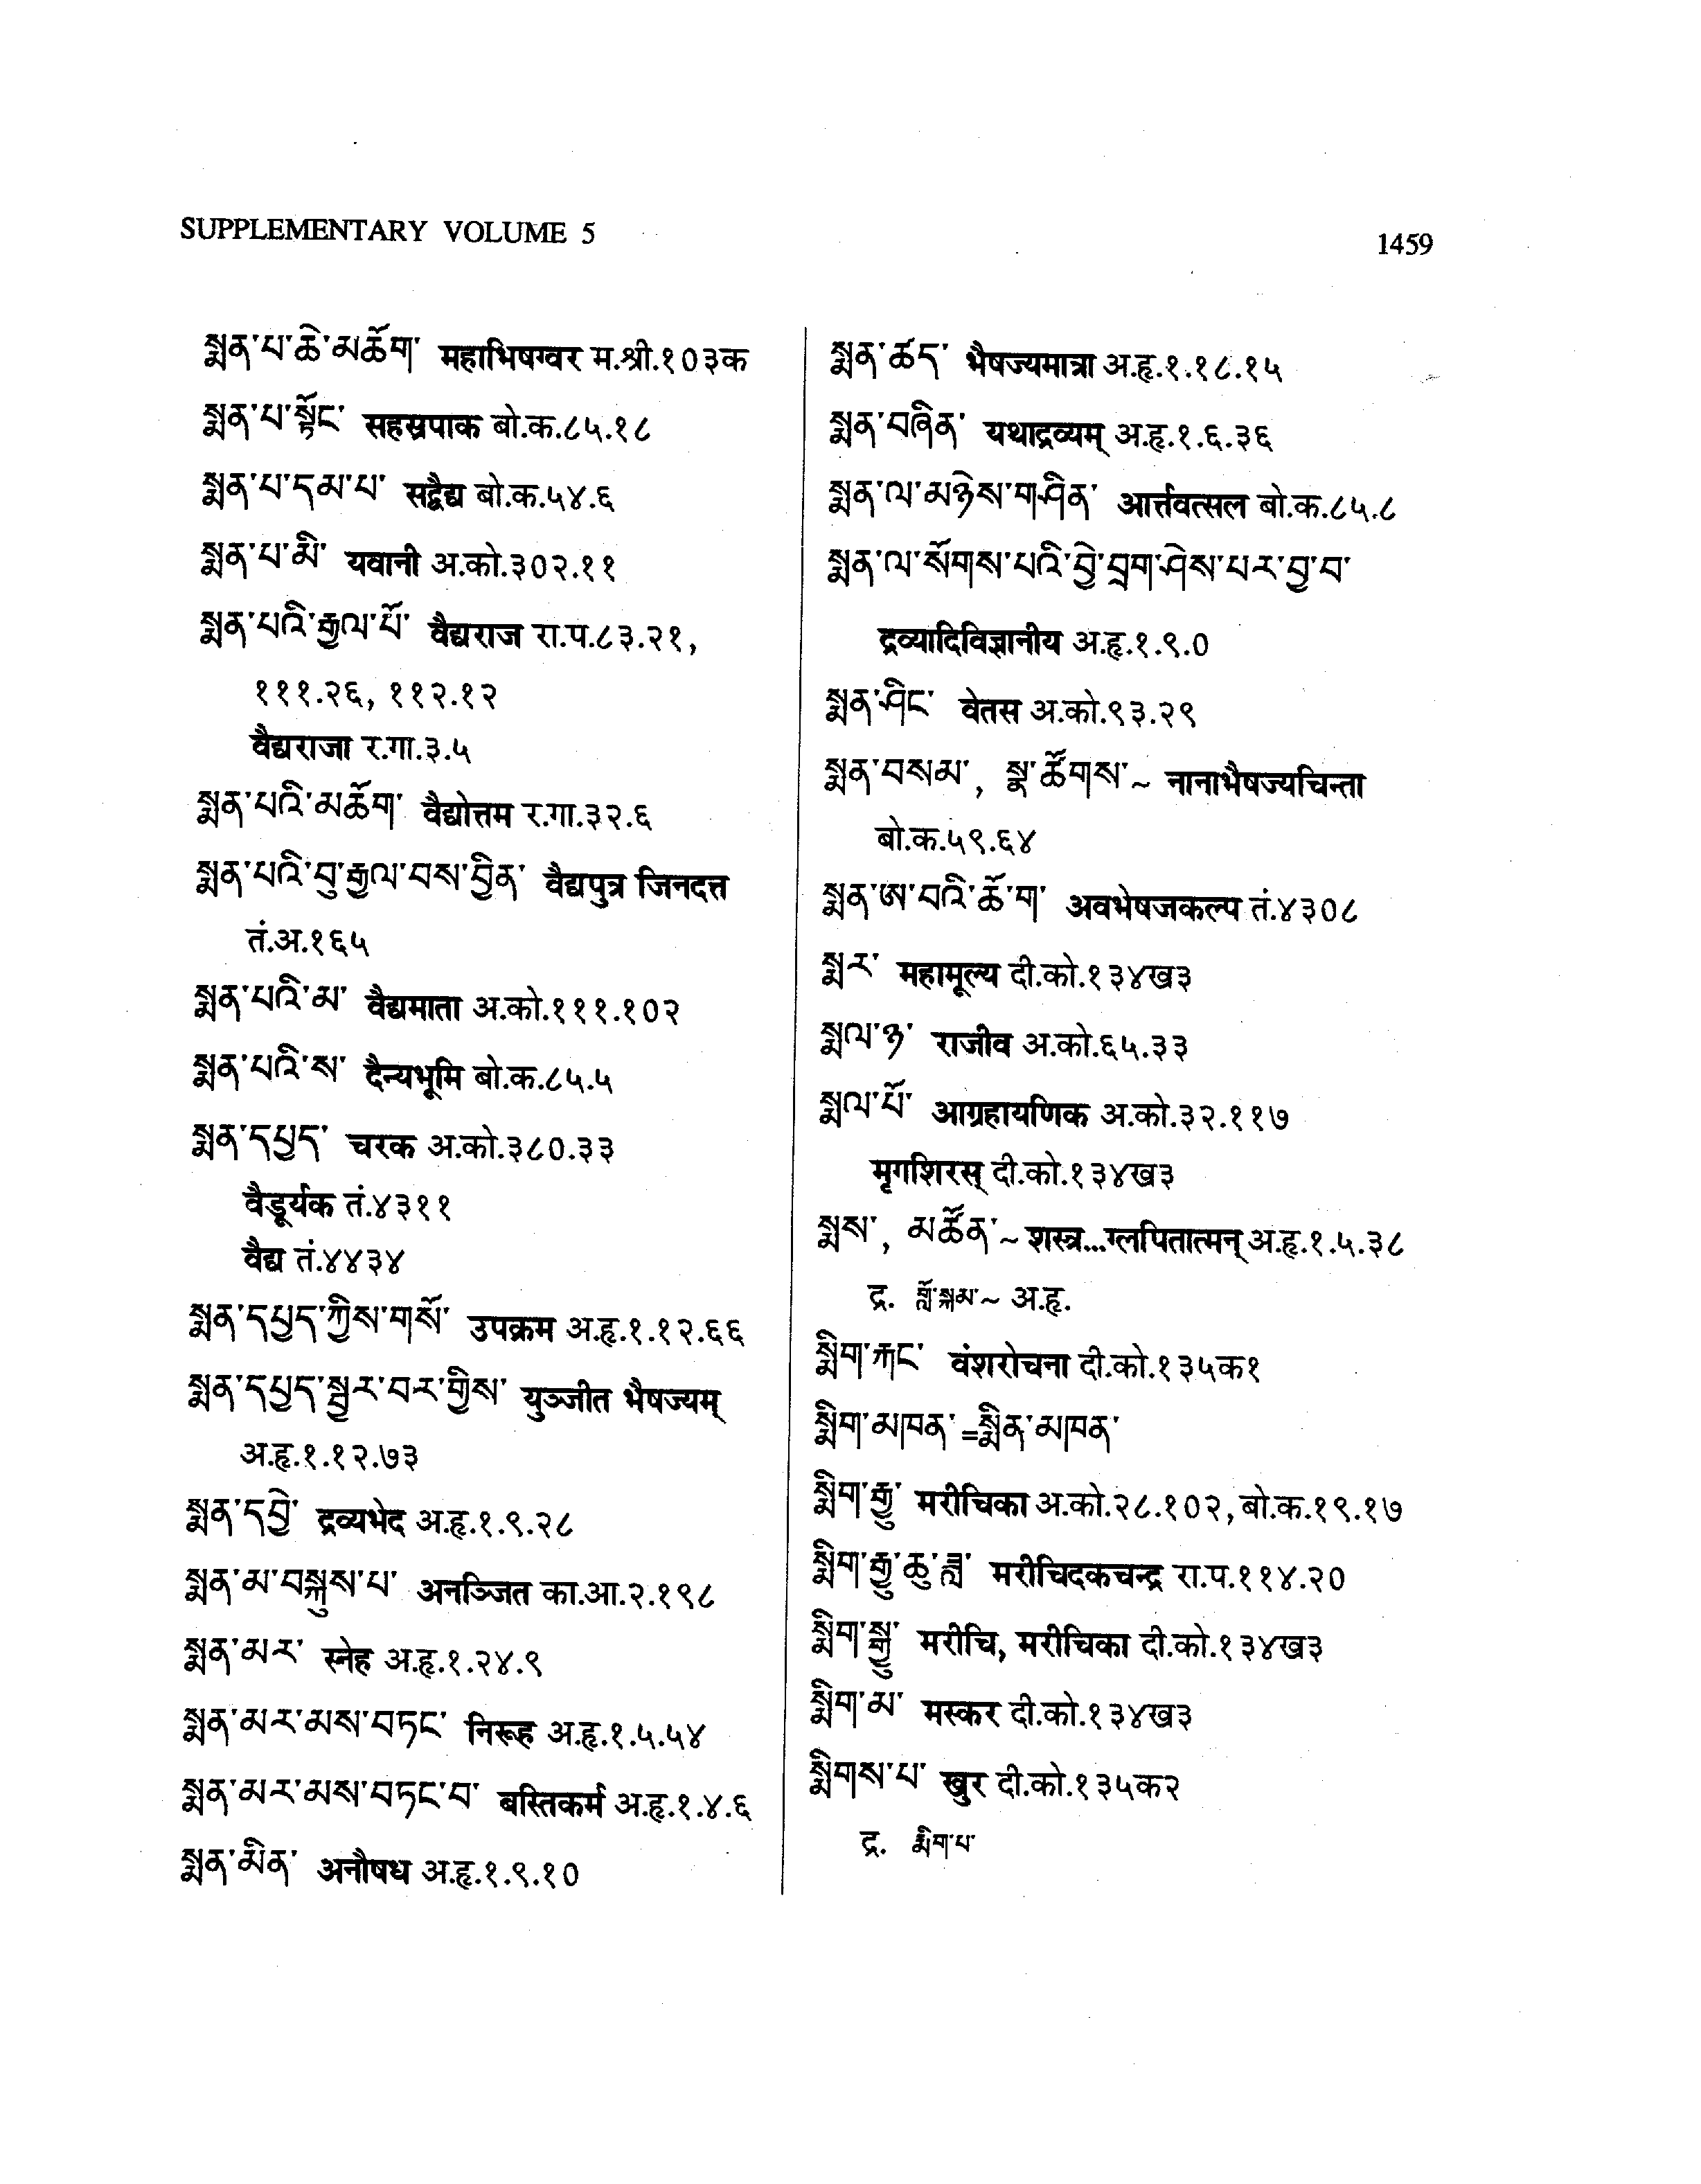 SUPPLEMENTARY VOLUME 5
1459
སྨན་པ་ཆེ་མཆོག་ महाभिषग्वर म.श्री.१०३क
སྨན་པ་སྟོང་ सहस्रपाक बो.क.८५.१८
སྨན་པ་དམ་པ་ सद्वैद्य बो.क.५४.६
སྨན་པ་མི་ यवानी अ.को.३०२.११
སྨན་པའི་རྒྱལ་པོ་ वैद्यराज रा.प.८३.२१,
१११.२६, ११२.१२
वैद्यराजा र.गा.३.५
སྨན་པའི་མཆོག་ वैद्योत्तम र.गा.३२.६
སྨན་པའི་བུ་རྒྱལ་བས་བྱིན་ वैद्यपुत्र जिनदत्त
तं.अ.१६५
སྨན་པའི་མ་ वैद्यमाता अ.को.१११.१०२
སྨན་པའི་ས་ दैन्यभूमि बो.क.८५.५
སྨན་དཔྱད་ चरक अ.को.३८०.३३
वैडूर्यक तं.४३११
वैद्य तं.४४३४
སྨན་དཔྱད་ཀྱིས་གསོ་ उपक्रम अ.हृ.१.१२.६६
སྨན་དཔྱད་སྦྱར་བར་གྱིས་ युञ्जीत भैषज्यम्
अ.हृ.१.१२.७३
སྨན་དབྱེ་ द्रव्यभेद अ.हृ.१.९.२८
སྨན་མ་བསྐུས་པ་ अनञ्जित का.आ.२.१९८
སྨན་མར་ स्नेह अ.हृ.१.२४.९
སྨན་མར་མས་བཏང་ निरूह अ.हृ.१.५.५४
སྨན་མར་མས་བཏང་བ་ बस्तिकर्म अ.हृ.१.४.६
སྨན་མིན་ अनौषध अ.हृ.१.९.१०
སྨན་ཚད་ भैषज्यमात्रा अ.हृ.१.१८.१५
སྨན་བཞིན་ यथाद्रव्यम् अ.हृ.१.६.३६
སྨན་ལ་མཉེས་གཤིན་ आर्त्तवत्सल बो.क.८५.८
སྨན་ལ་སོགས་པའི་བྱེ་བྲག་ཤེས་པར་བྱ་བ་
द्रव्यादिविज्ञानीय अ.हृ.१.९.०
སྨན་ཤིང་ वेतस अ.को.९३.२९
སྨན་བསམ་, སྣ་ཚོགས་~ नानाभैषज्यचिन्ता
बो.क.५९.६४
སྨན་ཨ་བའི་ཆོ་ག་ अवभेषजकल्प तं.४३०८
སྨར་ महामूल्य दी.को.१३४ख३
སྨལ་ཉ་ राजीव अ.को.६५.३३
སྨལ་པོ་ आग्रहायणिक अ.को.३२.११७
मृगशिरस् दी.को.१३४ख३
སྨས་, མཚོན་~ शस्त्र...ग्लपितात्मन् अ.हृ.१.५.३८
द्र. གློ་སྐམ་~ अ.हृ.
སྨིག་རྐང་ वंशरोचना दी.को.१३५क१
སྨིག་མཁན་=སྨིན་མཁན་
སྨིག་རྒྱུ་ मरीचिका अ.को.२८.१०२, बो.क.१९.१७
སྨིག་རྒྱུ་ཆུ་ཟླ་ मरीचिदकचन्द्र रा.प.११४.२०
སྨིག་སྒྱུ་ मरीचि, मरीचिका दी.को.१३४ख३
སྨིག་མ་ मस्कर दी.को.१३४ख३
སྨིགས་པ་ खुर दी.को.१३५क२
द्र. རྨིག་པ་